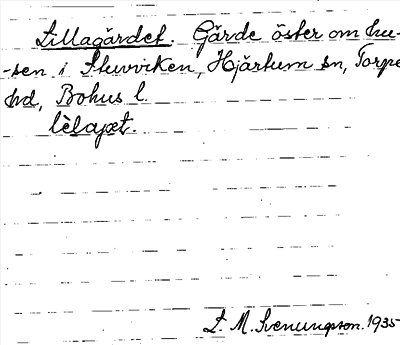 Lillagärdet. Gärde öster om hu-
-sen i Stuvviken, Hjärtum sn, Torpe
hd, Bohus l.
lèlajæt.
L. M. Svenungsson. 1935